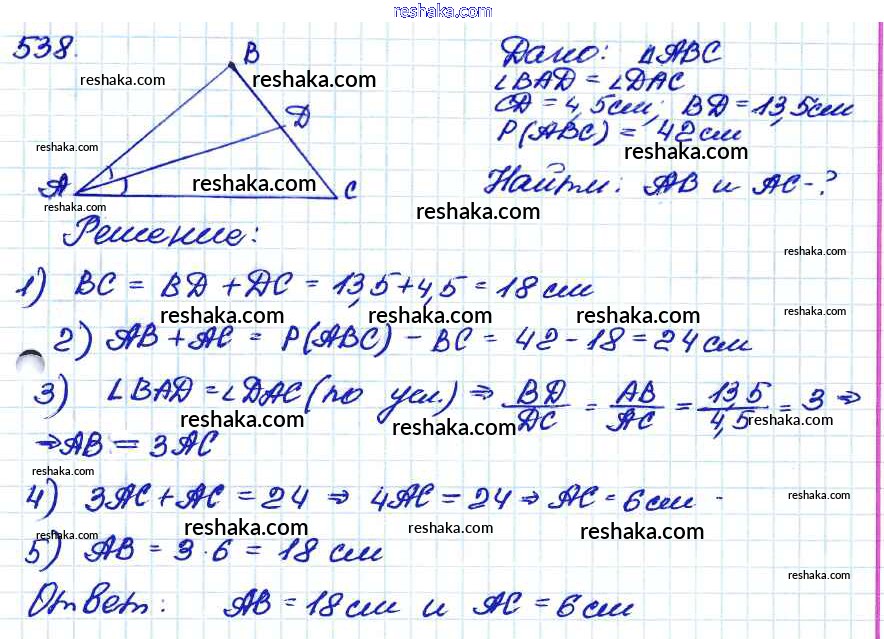 reshaka.com
538.
B
Дано: ΔABC
reshaka.com reshaka.com
∠BAD = ∠DAC
CD = 4,5см; BD = 13,5см
D
P(ABC) = 42 см
reshaka.com reshaka.com
A reshaka.com C
Найти: AB и AC - ?
reshaka.com reshaka.com
Решение:
reshaka.com
1) BC = BD + DC = 13,5 + 4,5 = 18 см
reshaka.com reshaka.com reshaka.com reshaka.com
2) AB + AC = P(ABC) - BC = 42 - 18 = 24 см
reshaka.com
3) ∠BAD = ∠DAC (по усл.) ⇒ BD/DC = AB/AC = 13,5/4,5 = 3 ⇒
reshaka.com reshaka.com reshaka.com
⇒ AB = 3AC
reshaka.com
4) 3AC + AC = 24 ⇒ 4AC = 24 ⇒ AC = 6 см
reshaka.com
reshaka.com reshaka.com reshaka.com reshaka.com
5) AB = 3 · 6 = 18 см
reshaka.com
Ответ: AB = 18 см и AC = 6 см